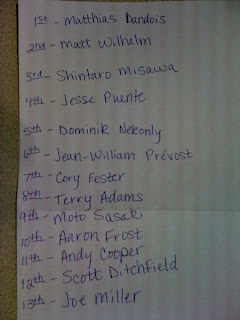 1st - Matthias Dandois
2nd - Matt Wilhelm
3rd - Shintaro Misawa
4th - Jesse Puente
5th - Dominik Nekonly
6th - Jean-William Prévost
7th - Cory Fester
8th - Terry Adams
9th - Moto Sasaki
10th - Aaron Frost
11th - Andy Cooper
12th - Scott Ditchfield
13th - Joe Miller